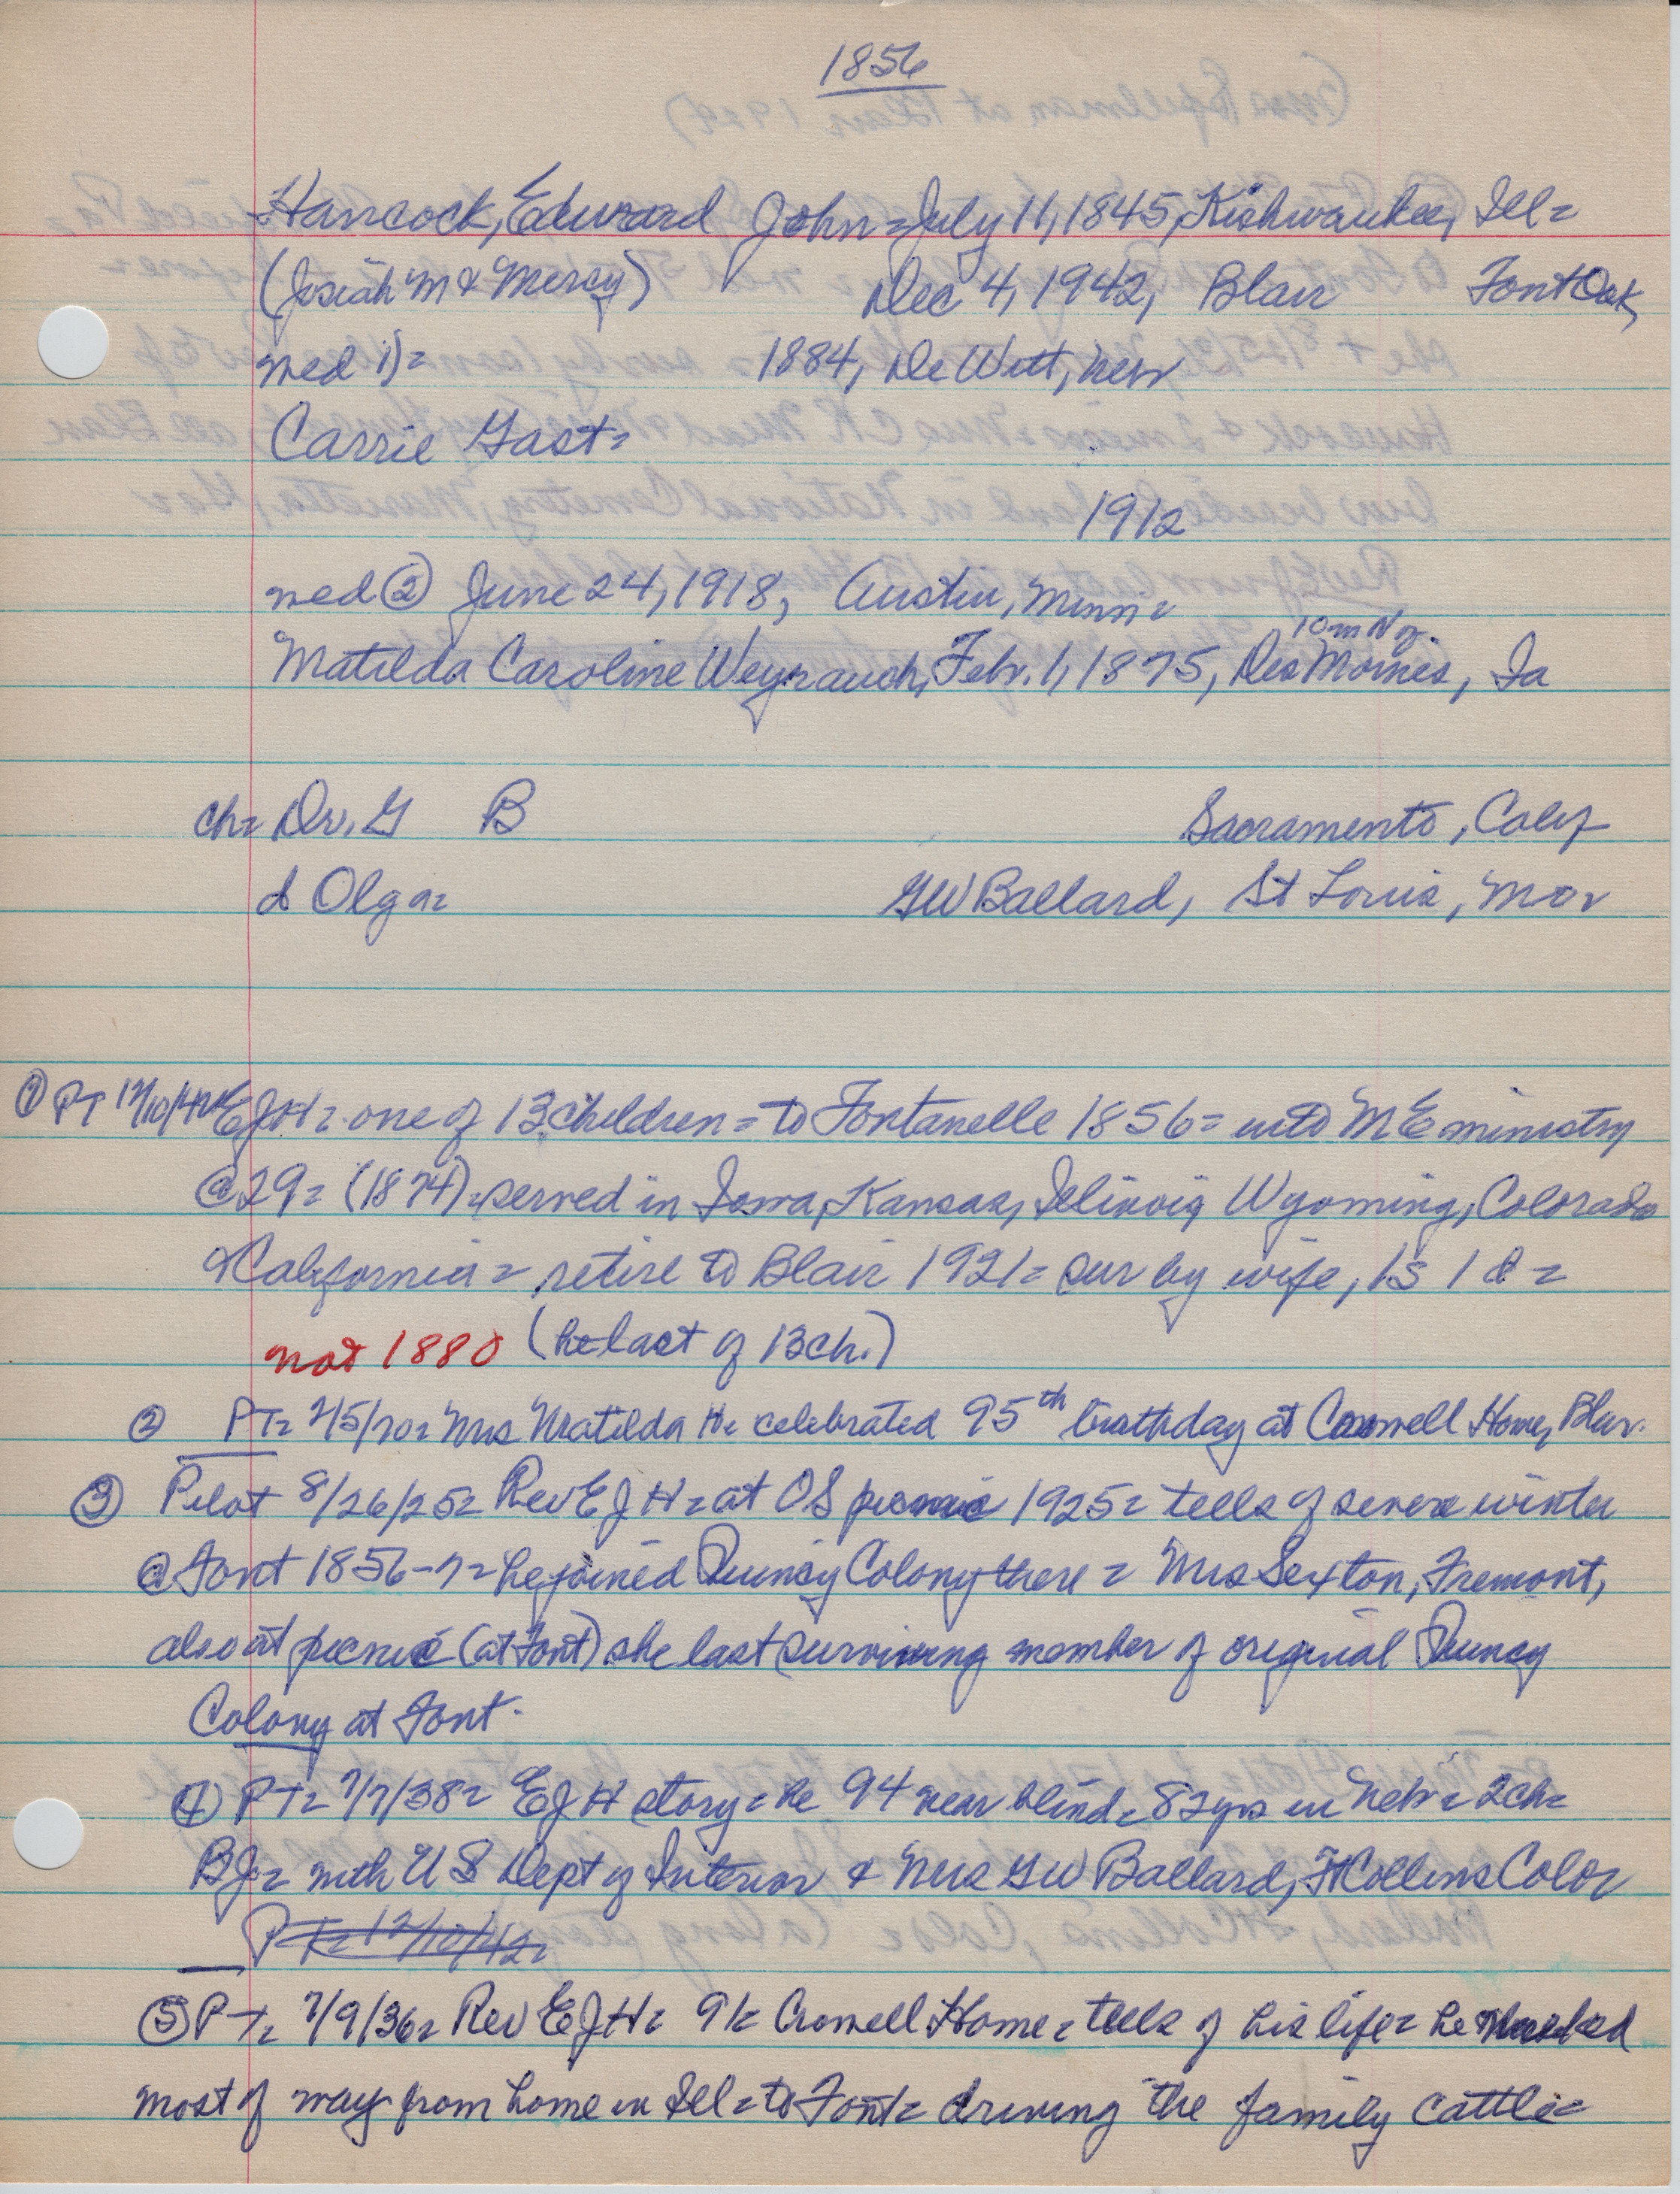 1856
Hancock, Edward John = July 11, 1845, Kishwaukee, Ill =
(Josiah M & Mercy) Dec 4, 1942, Blair Font Oak,
med 1) = 1884, De Witt, Nebr
Carrie Gast =
1912
med ② June 24, 1918, Austin, Minn =
10 m N of
Matilda Caroline Weyrauch, Febr. 1, 1875, Des Moines, Ia
ch = Dr. G B Sacramento, Calif
d Olga = GW Ballard, St Louis, Mo
① PT 12/10/42 EJH = one of 13 children = to Fontanelle 1856 = into ME ministry
@ 29 = (1874) = served in Iowa, Kansas, Illinois, Wyoming, Colorado
& California = retire to Blair 1921 = sur by wife, 1s 1d =
not 1880 (he last of 13 ch.)
② PT = 2/5/70 = Mrs Matilda H = celebrated 95th birthday at Crowell Home, Blair.
③ Pilot 8/26/25 = Rev EJH = at OS picnic 1925 = tells of severe winter
@ Font 1856-7 = he joined Quincy Colony there = Mrs Sexton, Fremont,
also at picnic (at Font) she last surviving member of original Quincy
Colony at Font.
④ PT = 7/7/38 = EJH story = he 94 near blind = 82 yrs in Nebr = 2 ch =
BJ = with US Dept of Interior & Mrs GW Ballard, Ft Collins Color
PT = 12/10/42 =
⑤ PT = 7/9/36 = Rev EJH = 91 = Crowell Home = tells of his life = he walked
most of way from home in Ill = to Font = driving the family cattle =